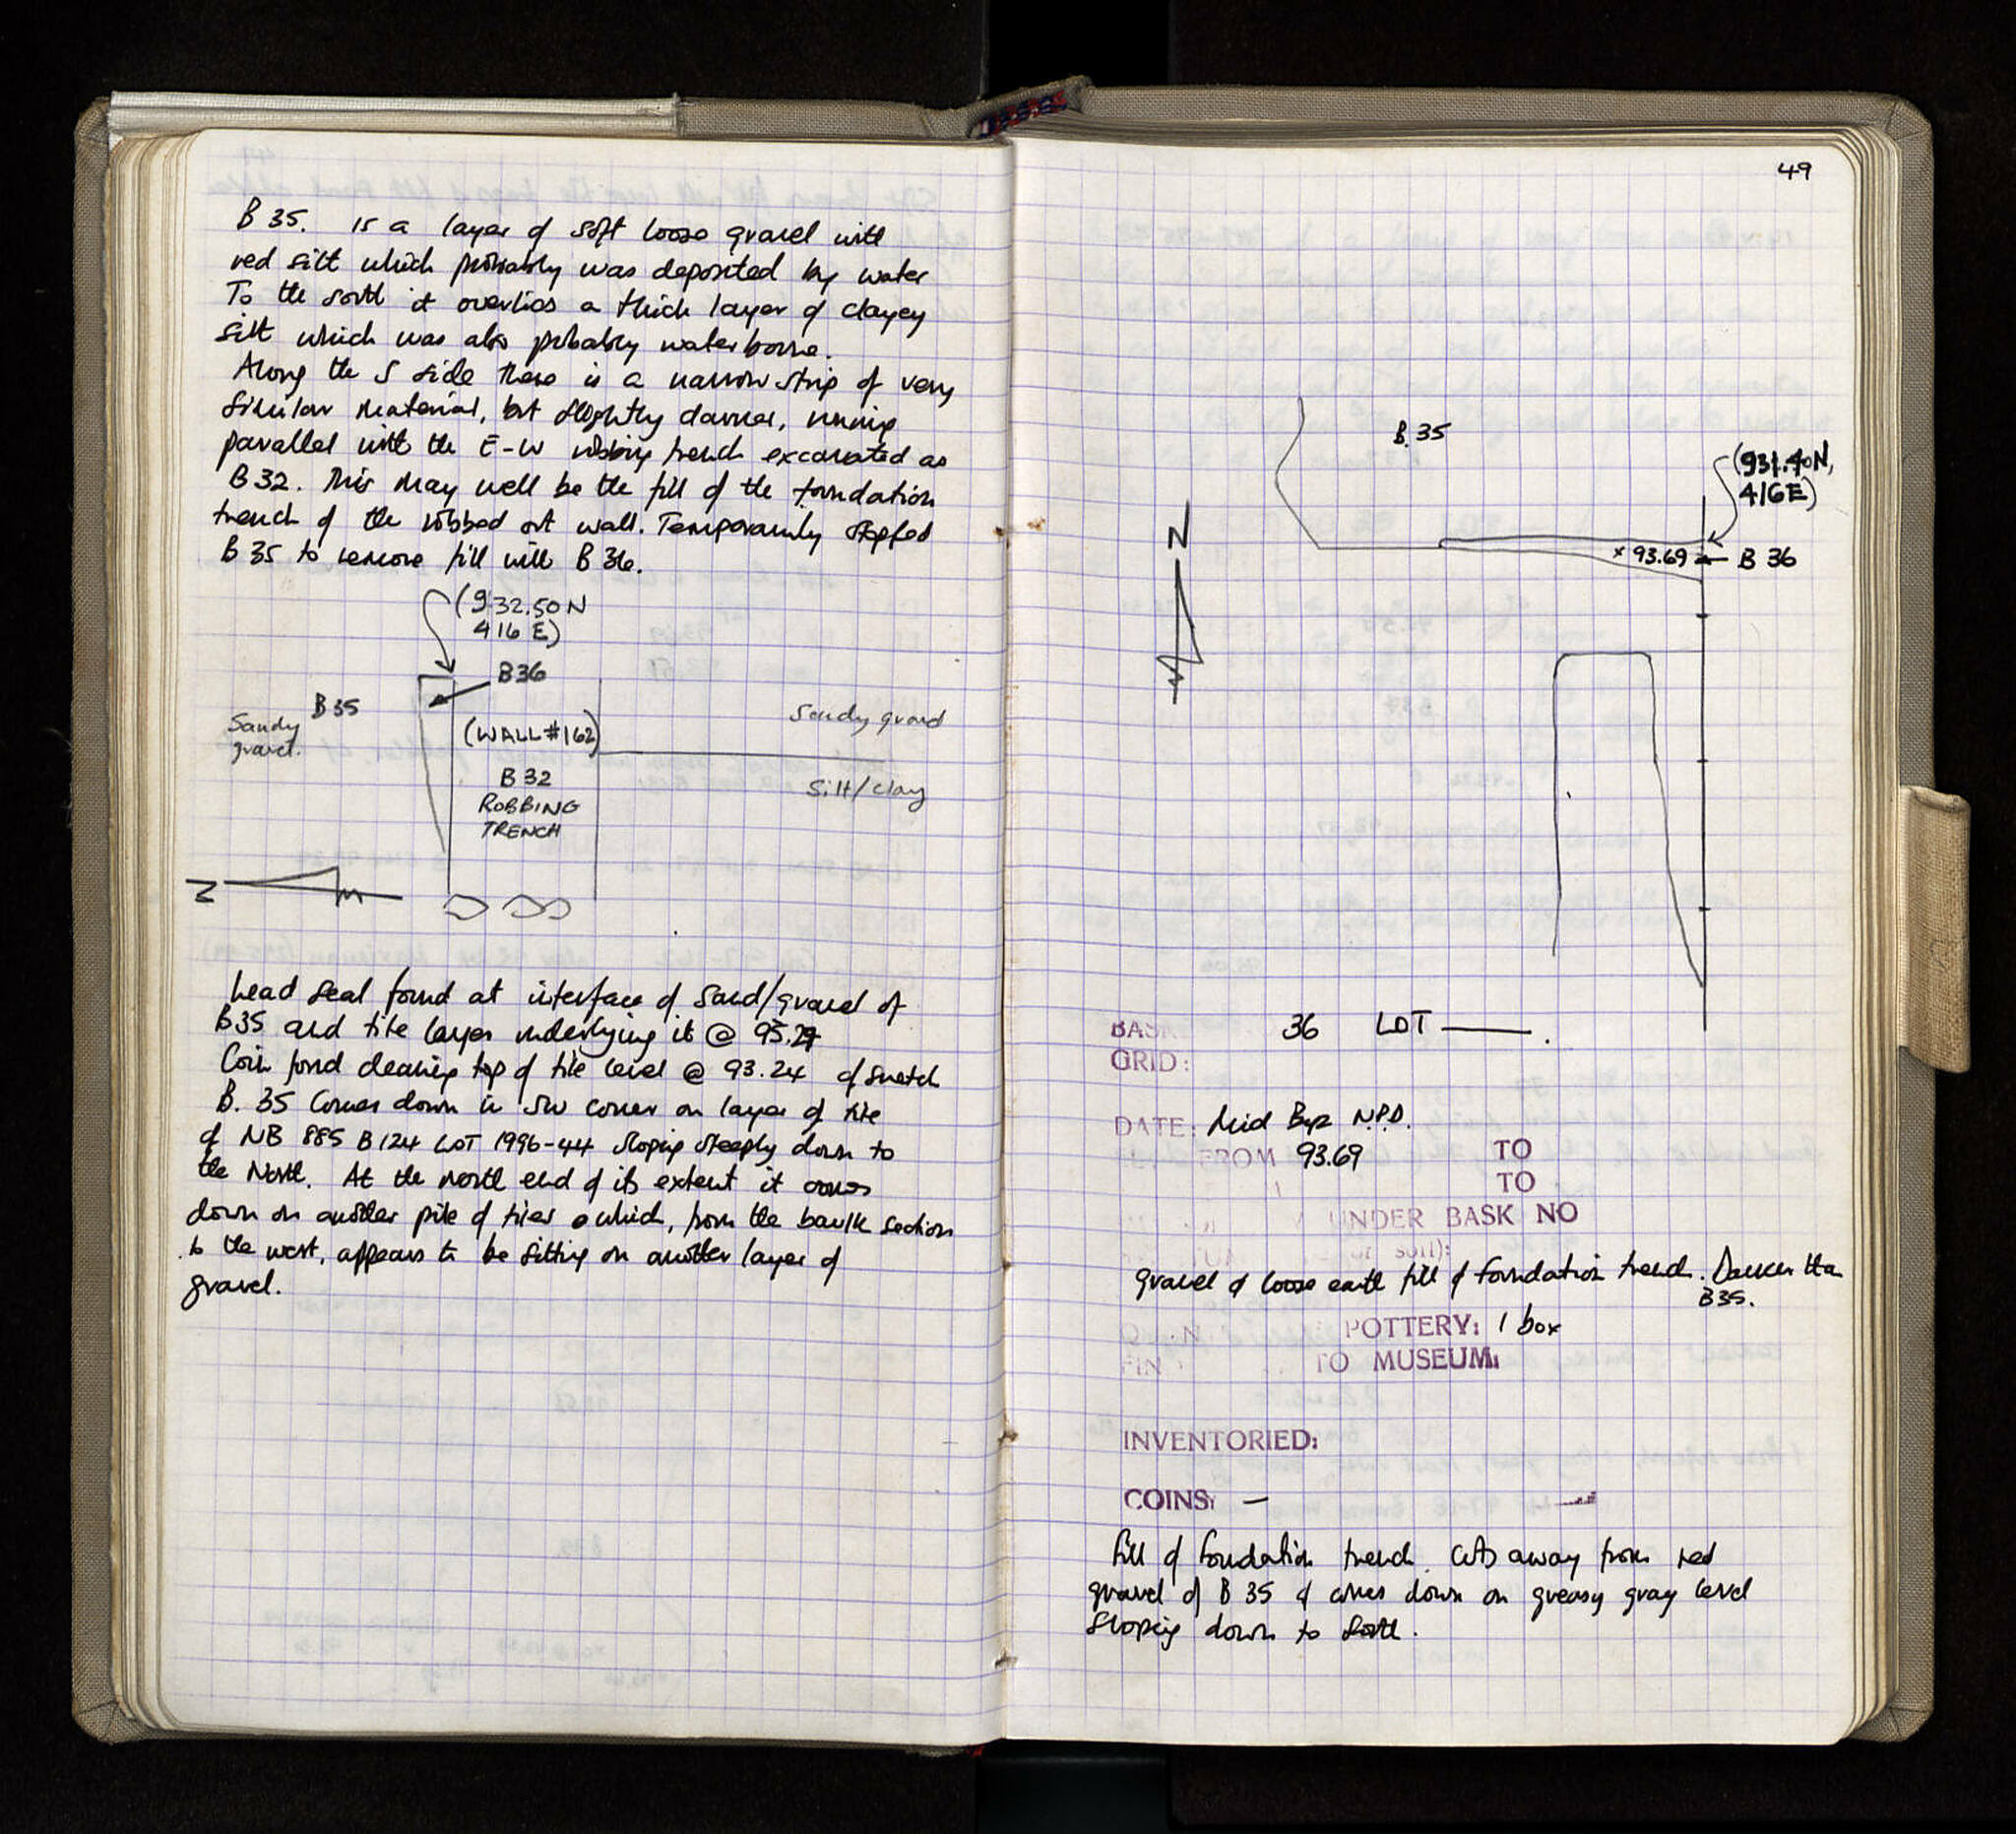 B 35. is a layer of soft loose gravel with
red silt which probably was deposited by water
To the south it overlies a thick layer of clayey
silt which was also probably waterborne.
Along the S side there is a narrow strip of very
similar material, but slightly darker, running
parallel with the E-W robbing trench excavated as
B32. This may well be the fill of the foundation
trench of the robbed out wall. Temporarily stopped
B 35 to remove fill with B 36.
(932.50N
416 E)
B36
B 35
Sandy
gravel.
(WALL #162)
Sandy gravel
B 32
ROBBING
TRENCH
Silt/clay
N
Lead seal found at interface of sand/gravel of
B35 and tile layer underlying it @
Coin found cleaning top of tile level @ 93.24 cf sketch
B. 35 Comes down in SW corner on layer of tile
cf NB 885 B124 LOT 1996-44 sloping steeply down to
the North. At the north end of its extent it comes
down on another pile of tiles which, from the baulk section
to the west, appears to be sitting on another layer of
gravel.
49
B. 35
(931.40N,
416E)
N
x 93.69
B 36
BASK 36 LOT —
GRID:
DATE: Mid Byz N.P.D.
FROM 93.69 TO
TO
UNDER BASK NO
soil):
gravel & loose earth fill of foundation trench. Darker than
B35.
POTTERY: 1 box
TO MUSEUM:
INVENTORIED:
COINS: —
Fill of foundation trench. Cuts away from red
gravel of B 35 & comes down on greasy gray level
sloping down to South.